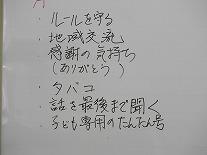 ・ルールを守る
・地域交流
・感謝の気持ち
(ありがとう)
・タバコ
・話を最後まで聞く
・子ども専用のたんたん号